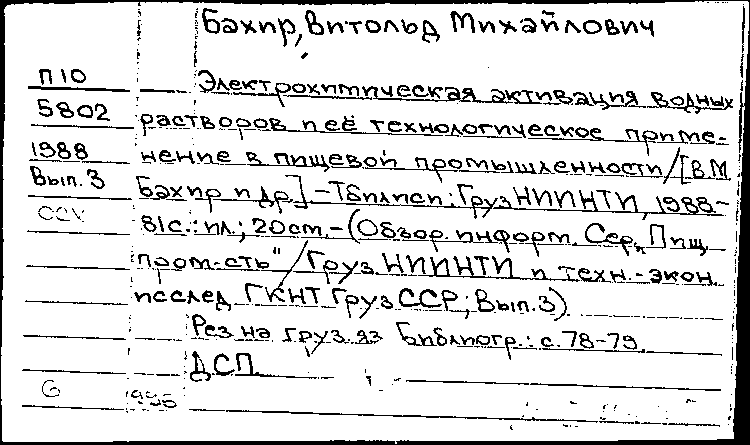 Бахир, Витольд Михайлович
П 10
5802
1988
Вып. 3
Электрохимическая активация водных
растворов и её технологическое приме-
нение в пищевой промышленности / [В.М.
Бахир и др.] - Тбилиси: ГрузНИИНТИ, 1988-
81с.: ил.; 20см. - (Обзор. информ. Сер. "Пищ.
пром-сть" / Груз.НИИНТИ и техн.-экон.
исслед. ГКНТ ГрузССР; Вып. 3)
Рез на груз. яз Библиогр.: с. 78-79.
ДСП